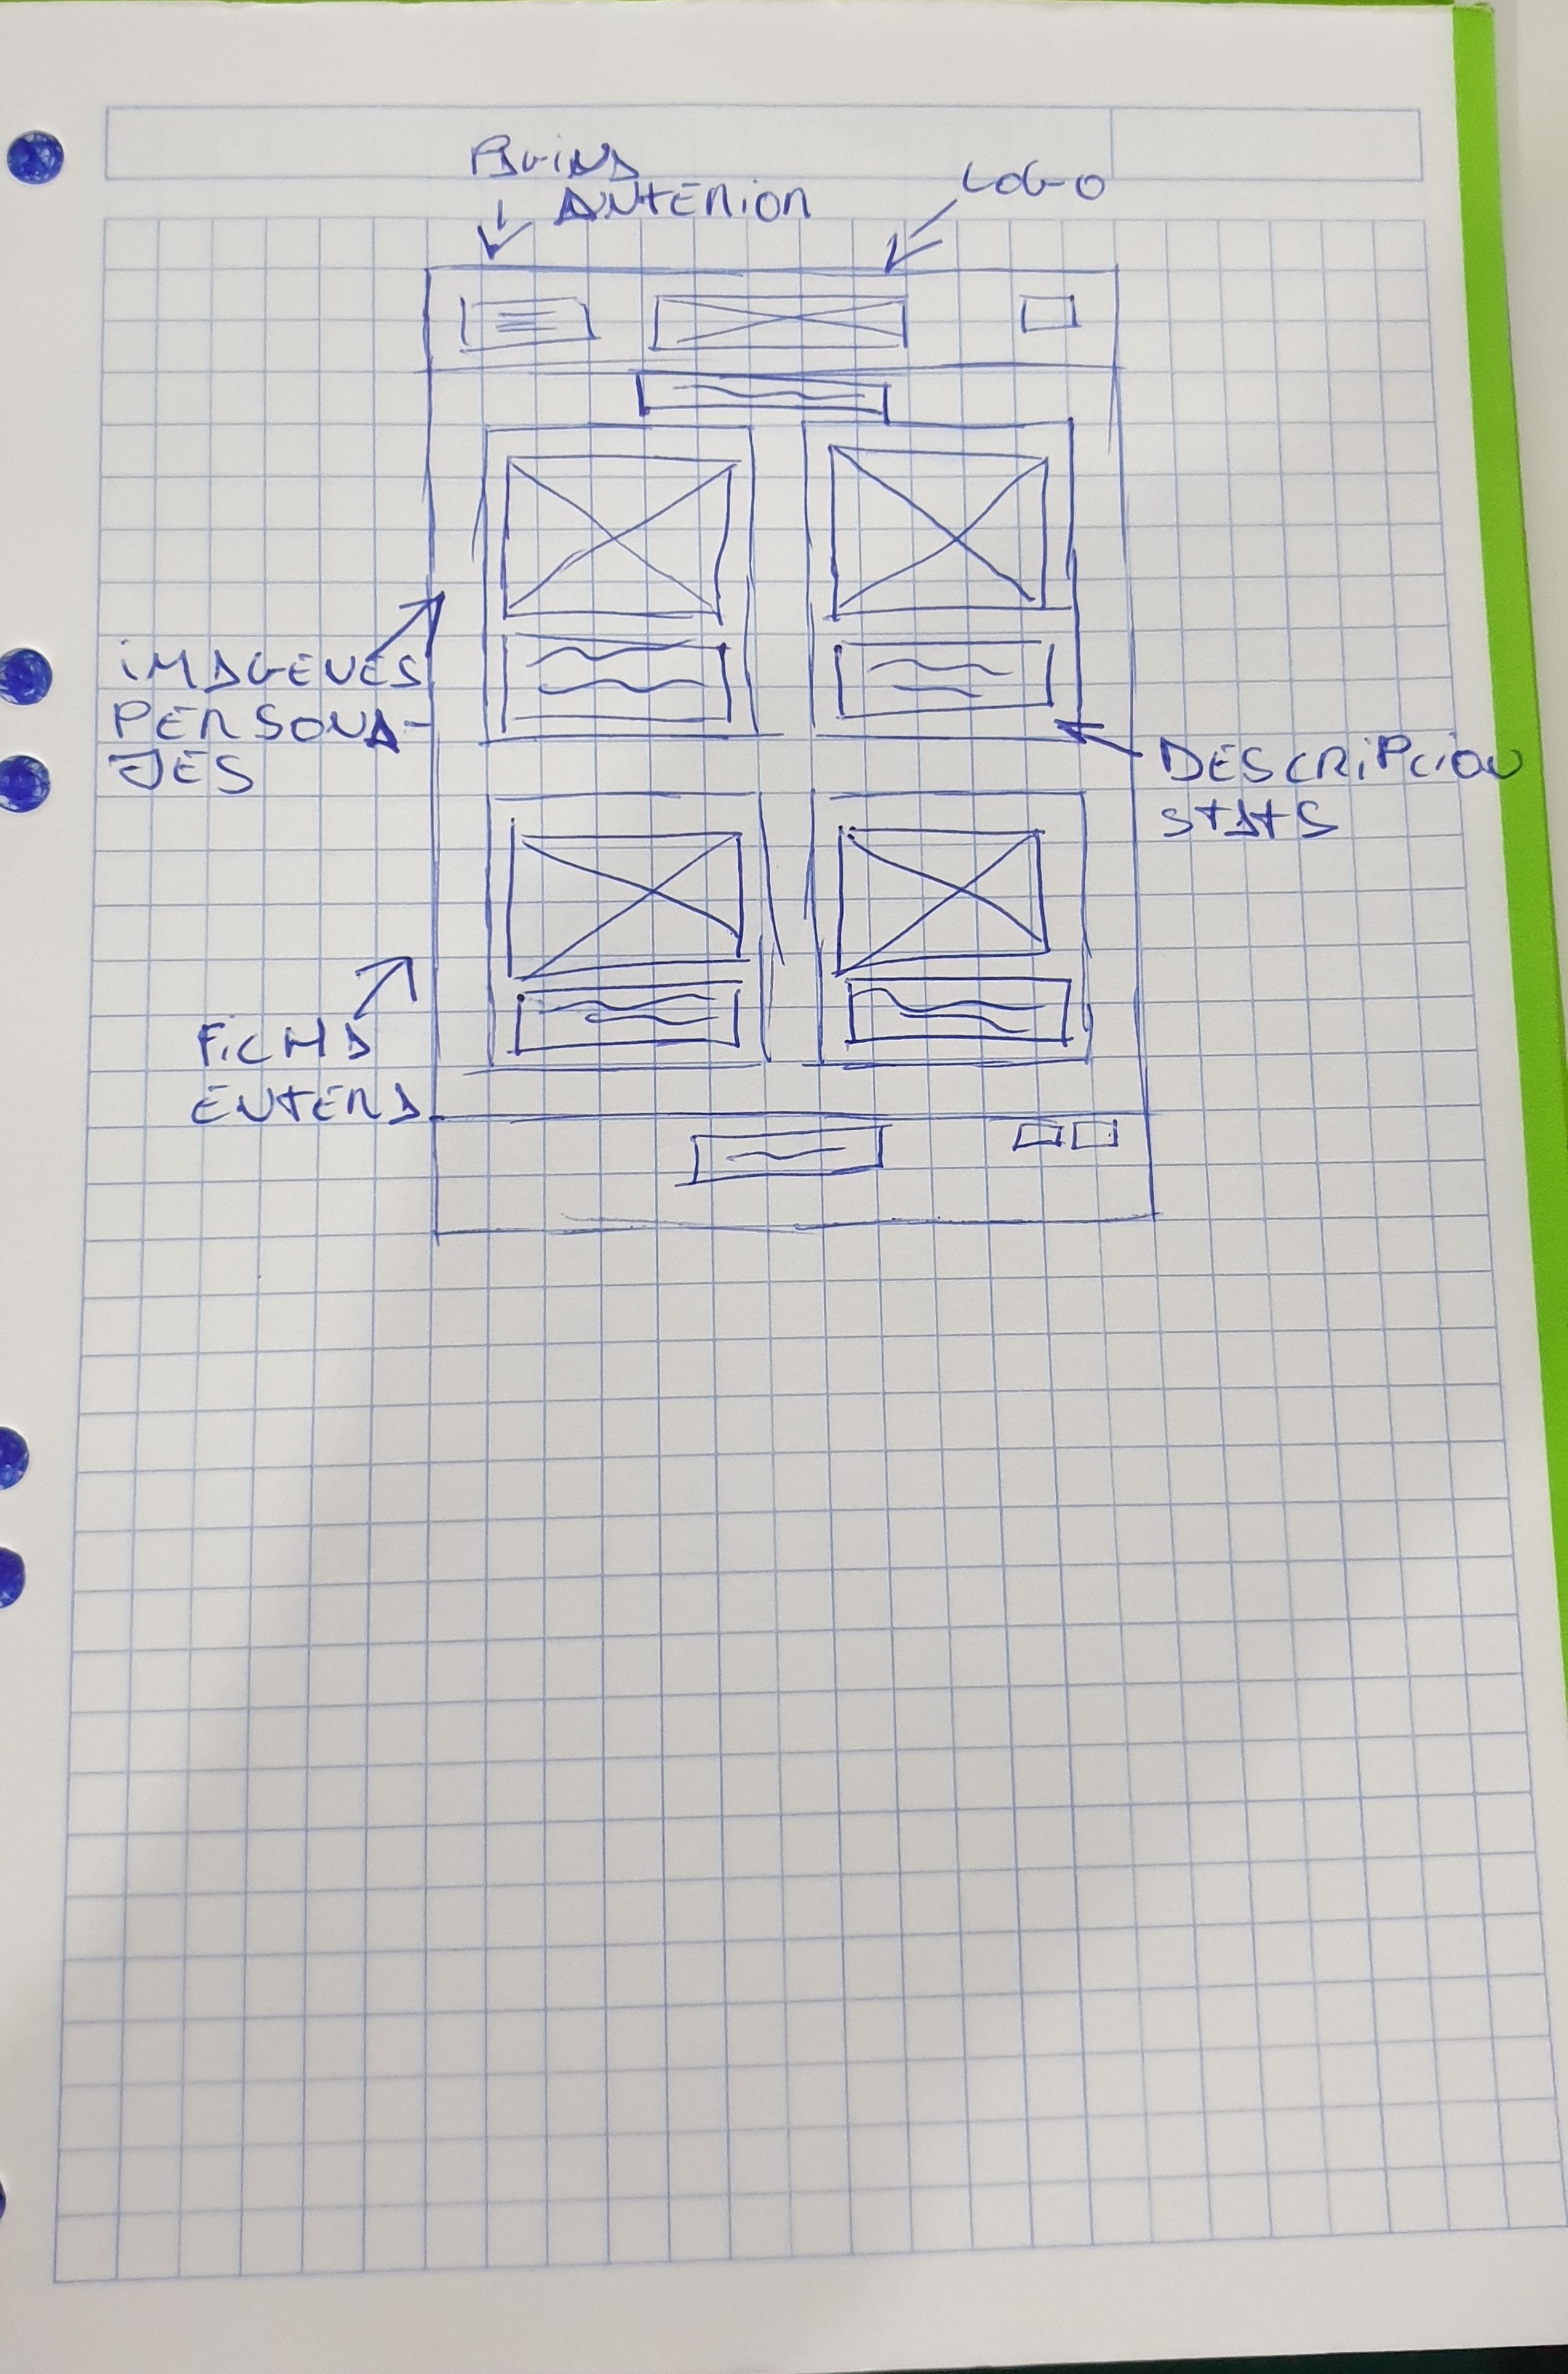 PAGINA
ANTERIOR
LOGO
IMAGENES
PERSONA-
JES
DESCRIPCION
STATS
FICHA
ENTERA